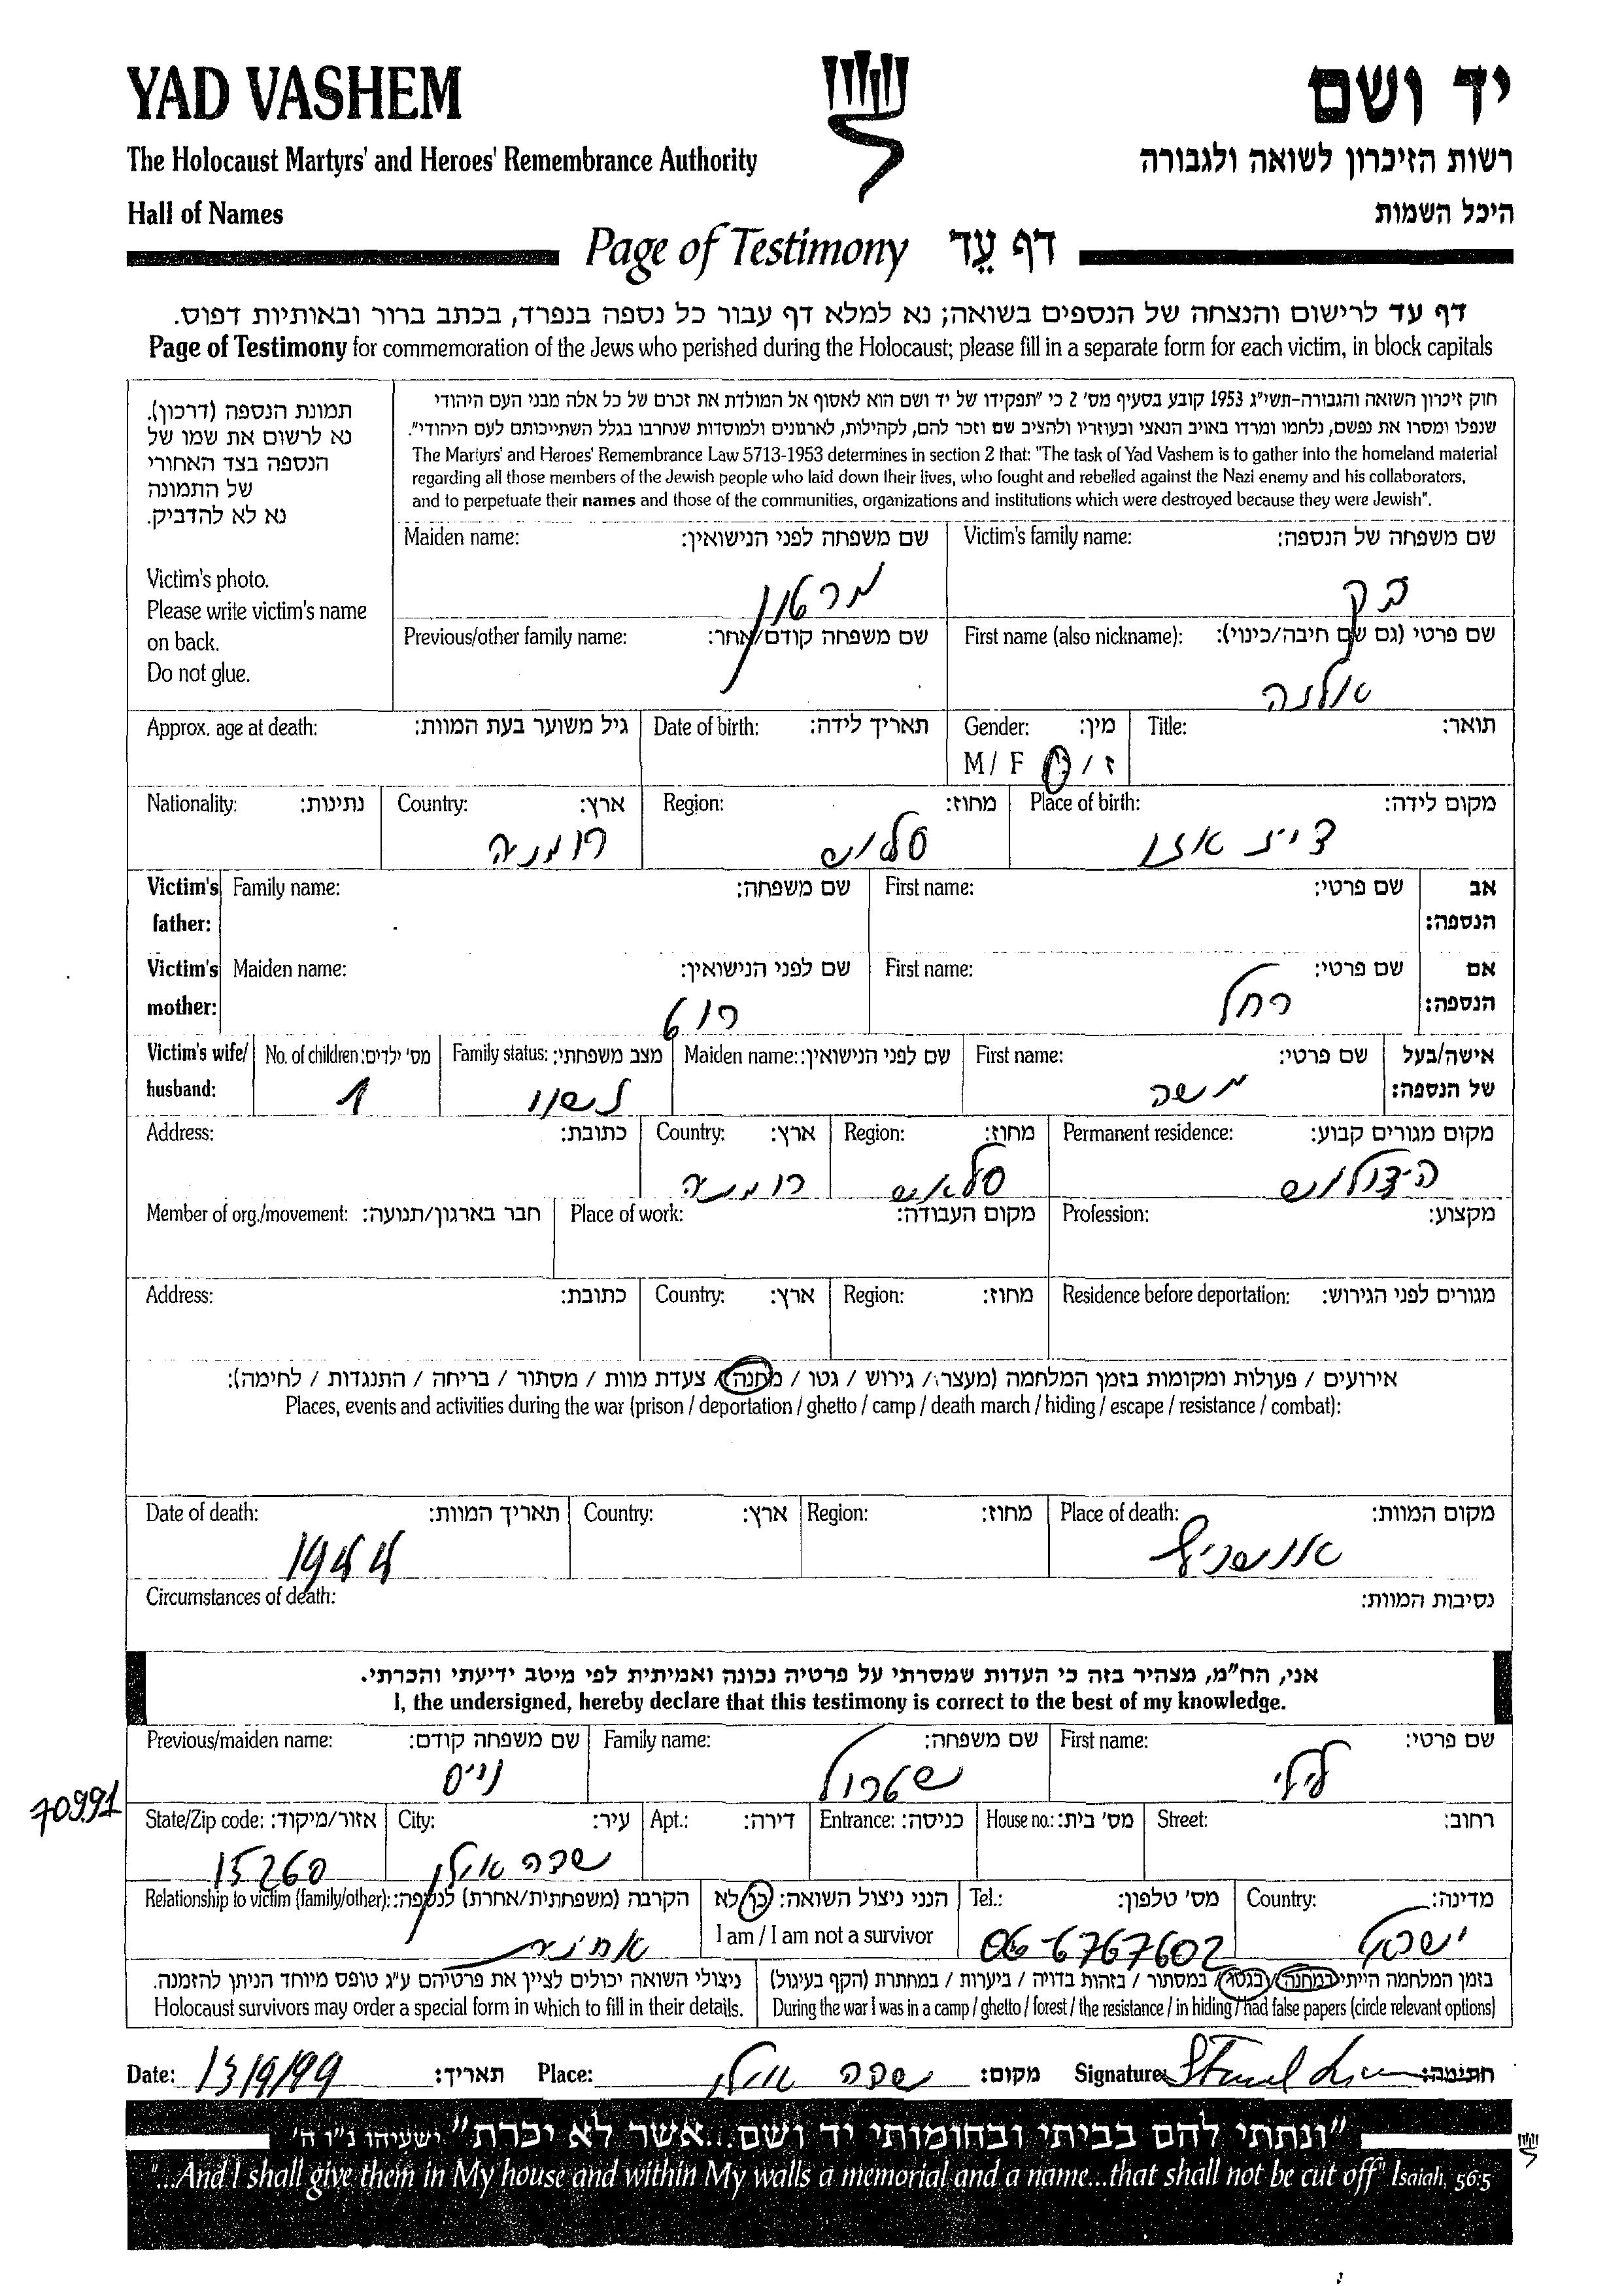 YAD VASHEM
יד ושם
The Holocaust Martyrs' and Heroes' Remembrance Authority
רשות הזיכרון לשואה ולגבורה
Hall of Names
היכל השמות
Page of Testimony דף עֵד
דף עד לרישום והנצחה של הנספים בשואה; נא למלא דף עבור כל נספה בנפרד, בכתב ברור ובאותיות דפוס.
Page of Testimony for commemoration of the Jews who perished during the Holocaust; please fill in a separate form for each victim, in block capitals
תמונת הנספה (דרכון).
נא לרשום את שמו של
הנספה בצד האחורי
של התמונה
נא לא להדביק.
Victim's photo.
Please write victim's name
on back.
Do not glue.
חוק זיכרון השואה והגבורה-תשי"ג 1953 קובע בסעיף מס' 2 כי "תפקידו של יד ושם הוא לאסוף אל המולדת את זכרם של כל אלה מבני העם היהודי
שנפלו ומסרו את נפשם, נלחמו ומרדו באויב הנאצי ובעוזריו ולהציב שם וזכר להם, לקהילות, לארגונים ולמוסדות שנחרבו בגלל השתייכותם לעם היהודי".
The Martyrs' and Heroes' Remembrance Law 5713-1953 determines in section 2 that: "The task of Yad Vashem is to gather into the homeland material
regarding all those members of the Jewish people who laid down their lives, who fought and rebelled against the Nazi enemy and his collaborators,
and to perpetuate their names and those of the communities, organizations and institutions which were destroyed because they were Jewish".
Victim's family name: שם משפחה של הנספה:
בק
Maiden name: שם משפחה לפני הנישואין:
מרטון
First name (also nickname): שם פרטי (גם שם חיבה/כינוי):
אלנה
Previous/other family name: שם משפחה קודם/אחר:
Title: תואר:
Gender: מין:
M / F ז / נ
Date of birth: תאריך לידה:
Approx. age at death: גיל משוער בעת המוות:
Place of birth: מקום לידה:
Region: מחוז:
Country: ארץ:
רומניה
Nationality: נתינות:
Victim's father: אב הנספה:
First name: שם פרטי:
Family name: שם משפחה:
Victim's mother: אם הנספה:
First name: שם פרטי:
רחל
Maiden name: שם לפני הנישואין:
רוט
Victim's wife/husband: אישה/בעל של הנספה:
First name: שם פרטי:
משה
Maiden name: שם לפני הנישואין:
Family status: מצב משפחתי:
נשוי
No. of children: מס' ילדים:
1
Permanent residence: מקום מגורים קבוע:
Region: מחוז:
סלאש
Country: ארץ:
רומניה
Address: כתובת:
Profession: מקצוע:
Place of work: מקום העבודה:
Member of org./movement: חבר בארגון/תנועה:
Residence before deportation: מגורים לפני הגירוש:
Region: מחוז:
Country: ארץ:
Address: כתובת:
אירועים / פעולות ומקומות בזמן המלחמה (מעצר / גירוש / גטו / מחנה / צעדת מוות / מסתור / בריחה / התנגדות / לחימה):
Places, events and activities during the war (prison / deportation / ghetto / camp / death march / hiding / escape / resistance / combat):
Place of death: מקום המוות:
אושוויץ
Region: מחוז:
Country: ארץ:
Date of death: תאריך המוות:
1944
Circumstances of death: נסיבות המוות:
אני, הח"מ, מצהיר בזה כי העדות שמסרתי על פרטיה נכונה ואמיתית לפי מיטב ידיעתי והכרתי.
I, the undersigned, hereby declare that this testimony is correct to the best of my knowledge.
First name: שם פרטי:
לילי
Family name: שם משפחה:
שטרול
Previous/maiden name: שם משפחה קודם:
וייס
70991
Street: רחוב:
House no.: מס' בית:
Entrance: כניסה:
Apt.: דירה:
City: עיר:
שדה אילן
State/Zip code: אזור/מיקוד:
15260
Country: מדינה:
ישראל
Tel.: מס' טלפון:
06-6767602
הנני ניצול השואה: כן/לא
I am / I am not a survivor
Relationship to victim (family/other): הקרבה (משפחתית/אחרת) לנספה:
אחינית
בזמן המלחמה הייתי במחנה/בגטו/ במסתור / בזהות בדויה / ביערות / במחתרת (הקף בעיגול)
During the war I was in a camp / ghetto / forest / the resistance / in hiding / had false papers (circle relevant options)
ניצולי השואה יכולים לציין את פרטיהם ע"ג טופס מיוחד הניתן להזמנה.
Holocaust survivors may order a special form in which to fill in their details.
Date: 13/9/99 תאריך: Place: שדה אילן מקום: Signature: חתימה:
"ונתתי להם בביתי ובחומותי יד ושם...אשר לא יכרת" ישעיהו נ"ו ה'
"...And I shall give them in My house and within My walls a memorial and a name...that shall not be cut off" Isaiah, 56:5